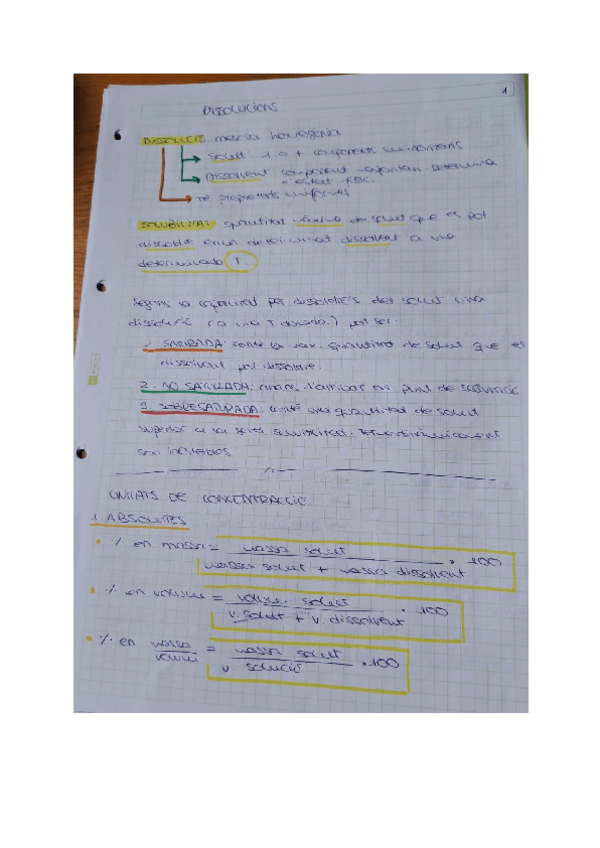 1
Dissolucions
DISSOLUCIÓ: mescla homogènia
Solut: 1 o + components minoritaris
Dissolvent: component majoritari. Determina
estat físic.
Té propietats uniformes
SOLUBILITAT: quantitat màxima de solut que es pot
dissoldre en un determinat dissolvent a una
determinada T.
Segons la capacitat per dissoldre's del solut una
dissolució (a una T donada) pot ser:
1. SATURADA: conté la max. quantitat de solut que el
dissolvent pot dissoldre.
2. NO SATURADA: abans d'arribar al punt de saturació
3. SOBRESATURADA: conté una quantitat de solut
superior a la seva solubilitat. Termodinàmicament
són inestables
UNITATS DE CONCENTRACCIÓ
1. ABSOLUTES
% en massa = massa solut / massa solut + massa dissolvent · 100
% en volum = volum solut / v. solut + v. dissolvent · 100
% en massa / volum = massa solut / v. solució · 100